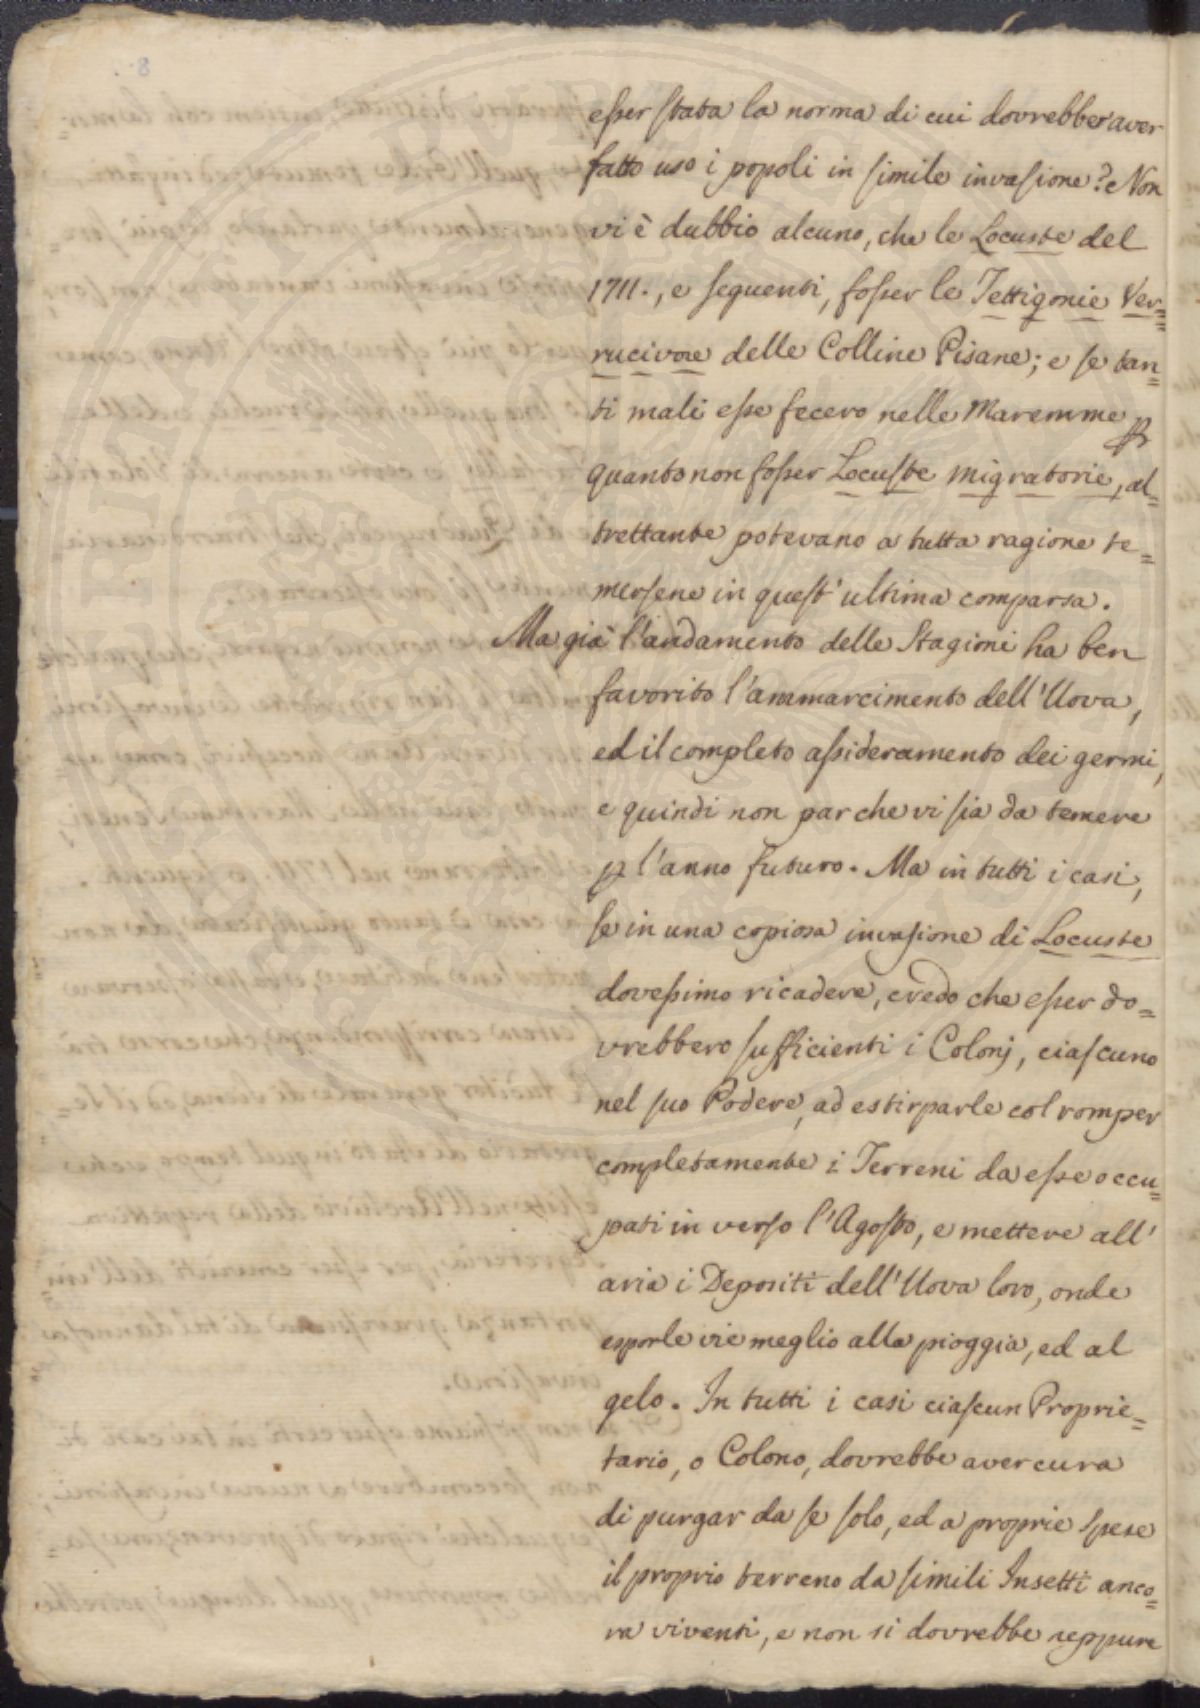 8
esser stata la norma di cui dovrebber aver
fatto uso i popoli in simile invasione? Non
vi è dubbio alcuno, che le Locuste del
1711., e seguenti, fosser le Tettigonie Ver=
rucivore delle Colline Pisane; e se tan=
ti mali esse fecero nelle Maremme
quanto non fosser Locuste migratorie, al=
trettante potevano a tutta ragione te=
mersene in quest' ultima comparsa.
Ma già l'andamento delle Stagioni ha ben
favorito l'ammarcimento dell'Uova,
ed il completo assideramento dei germi,
e quindi non par che vi sia da temere
p l'anno futuro. Ma in tutti i casi,
se in una copiosa invasione di Locuste
dovessimo ricadere, credo che esser do=
vrebbero sufficienti i Colonj, ciascuno
nel suo Podere, ad estirparle col romper
completamente i Terreni da esse occu=
pati in verso l'Agosto, e mettere all'
aria i Depositi dell'Uova loro, onde
esporle vie meglio alla pioggia, ed al
gelo. In tutti i casi ciascun Proprie=
tario, o Colono, dovrebbe aver cura
di purgar da se solo, ed a proprie spese
il proprio terreno da simili Insetti anco=
ra viventi, e non si dovrebbe neppure